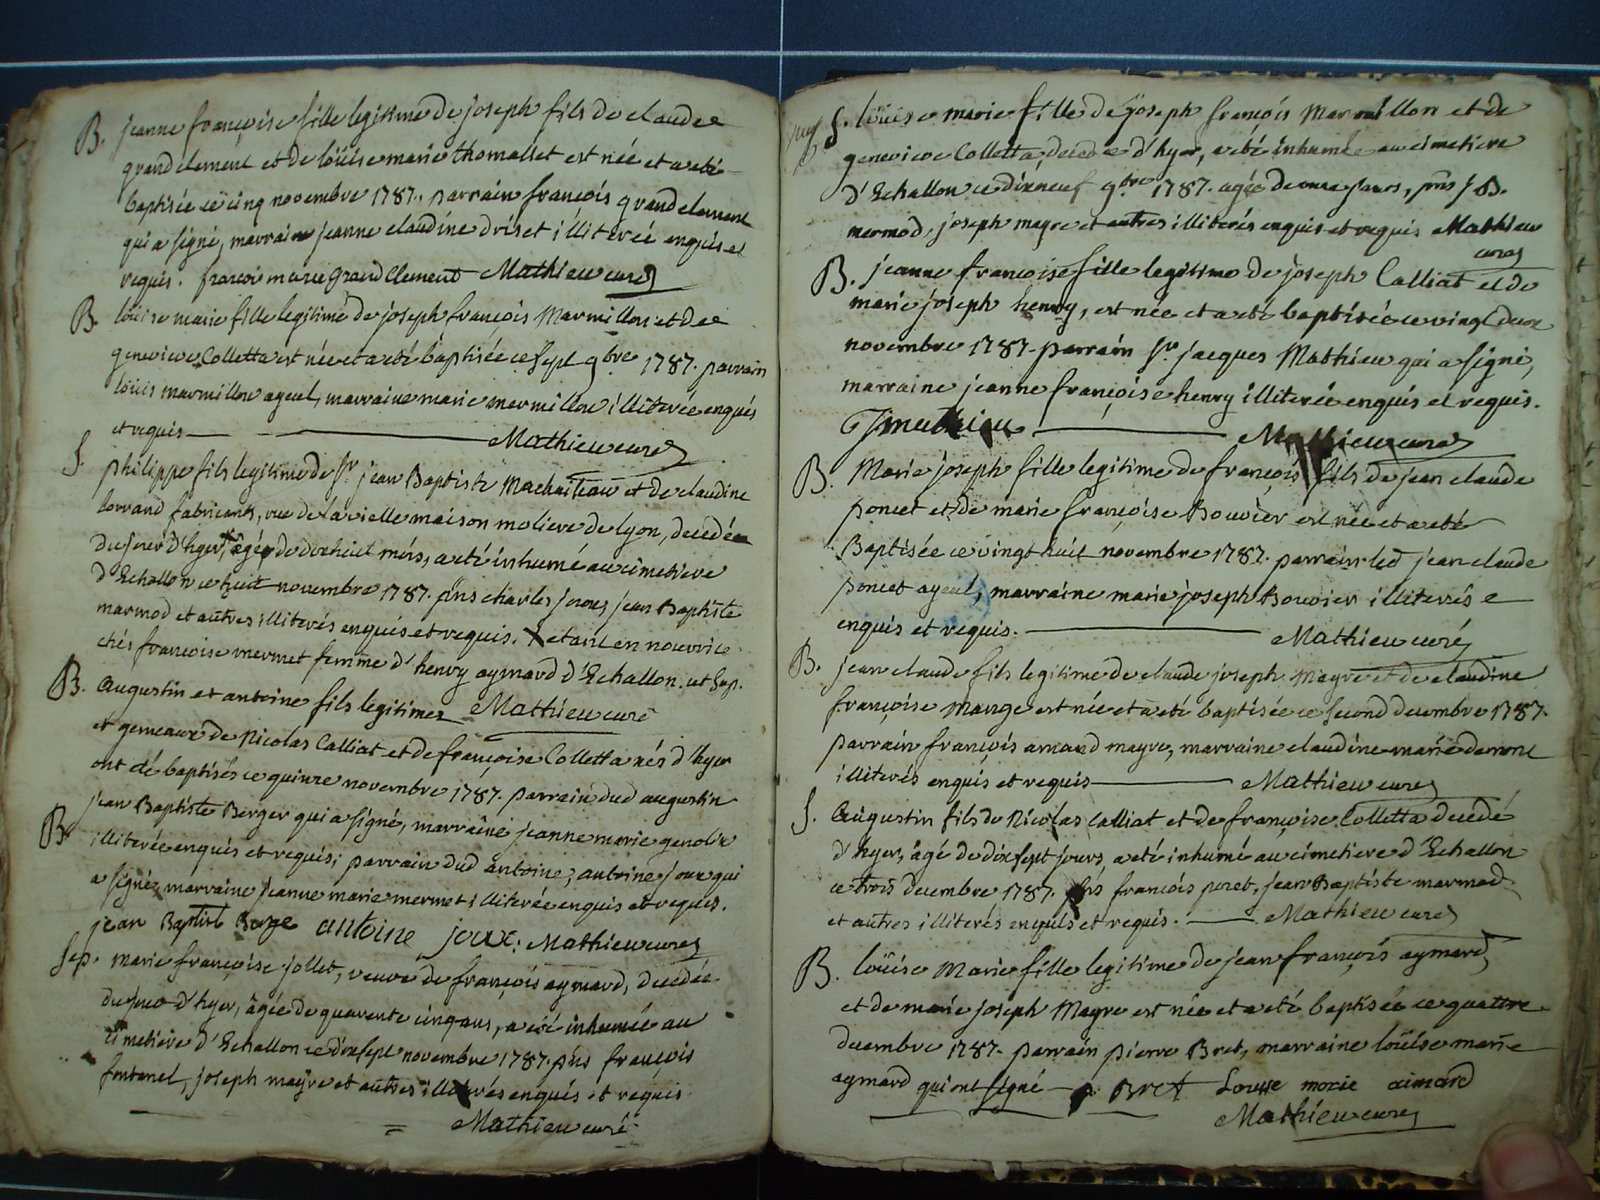 B. jeanne françoise fille legitime de joseph fils de claude
grand clement et de loüise marie thomasset est née et a eté
baptisée ce cinq novembre 1787. parrain françois grand clement
qui a signé, marraine jeanne claudine driset illiterée enquise et
requis. francoi marie grand Clement Mathieu curé
B. loüise marie fille legitime de joseph françois Marmillon et de
genevieve Colletta est née et a eté baptisée ce sept 9bre 1787. parrain
loüis marmillon ayeul, marraine marie marmillon illiterée enquis
et requis Mathieu curé
S. philippe fils legitime de Sr jean Baptiste et de claudine
fabricants, rue de la vielle maison de lyon, decedé
du jour d'hyer, âgé de dixhuit mois, a eté inhumé au cimetiere
d'Echallon ce huit novembre 1787. pñs charles joux, jean Baptiste
marmod et autres illiterés enquis et requis. X etant en nourrice
chés françoise mermet femme d'henry aymard d'Echallon.
B. Augustin et antoine fils legitimes Mathieu curé
et gemeaux de Nicolas Calliat et de françoise Colletta nés d'hyer
ont été baptisés ce quinze novembre 1787. parrain dud augustin
jean Baptiste Berger qui a signé, marraine jeanne marie genolin
B. illiterée enquis et requis; parrain dud antoine, antoine joux qui
a signé, marraine jeanne marie mermet illiterée enquis et requis.
jean Baptist Berge antoine joux. Mathieu curé
Sep. marie françoise jollet, veuve de françois aymard, decedée
du jour d'hyer, âgée de quarente cinq ans, a eté inhumée au
cimetiere d'Echallon ce dixsept novembre 1787. pñs françois
fontanel, joseph mayre et autres illiterés enquis et requis
Mathieu curé
S. loüise marie fille de joseph françois Marmillon et de
genevieve Colletta, decedée d'hyer, a eté inhumée au cimetiere
d'Echallon ce dixneuf 9bre 1787. agée de onze jours, pñs J B.
mermod, joseph mayre et autres illiterés enquis et requis Mathieu
curé
B. jeanne françoise fille legitime de joseph Calliat et de
marie joseph henry, est née et a eté baptisée ce vingt deux
novembre 1787. parrain Sr jacques Mathieu qui a signé,
marraine jeanne françoise henry illiterée enquis et requis.
J mathieu Mathieu curé
B. Marie joseph fille legitime de françois fils de jean claude
poncet et de marie françoise Bouvier est née et a eté
Baptisée ce vingt huit novembre 1787. parrain led jean claude
poncet ayeul, marraine marie joseph Bouvier illiterés
enquis et requis. Mathieu curé
B. jean claude fils legitime de claude joseph Mayre et de claudine
françoise Marge est née et a eté baptisée ce second decembre 1787.
parrain françois amand mayre, marraine claudine marie
illiterés enquis et requis Mathieu curé
S. Augustin fils de Nicolas Calliat et de françoise Colletta decedé
d'hyer, âgé de dixsept jours, a eté inhumé au cimetiere d'Echallon
ce trois decembre 1787. pñs françois poncet, jean Baptiste marmod
et autres illiterés enquis et requis. Mathieu curé
B. loüise Marie fille legitime de jean françois aymard,
et de marie joseph Mayre est née et a eté baptisée ce quatre
decembre 1787. parrain pierre Bret, marraine loüise marie
aymard qui ont signé p Bret Louise marie aimard
Mathieu curé